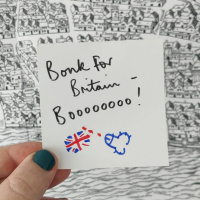 Bonk for
Britain -
Booooooooo!